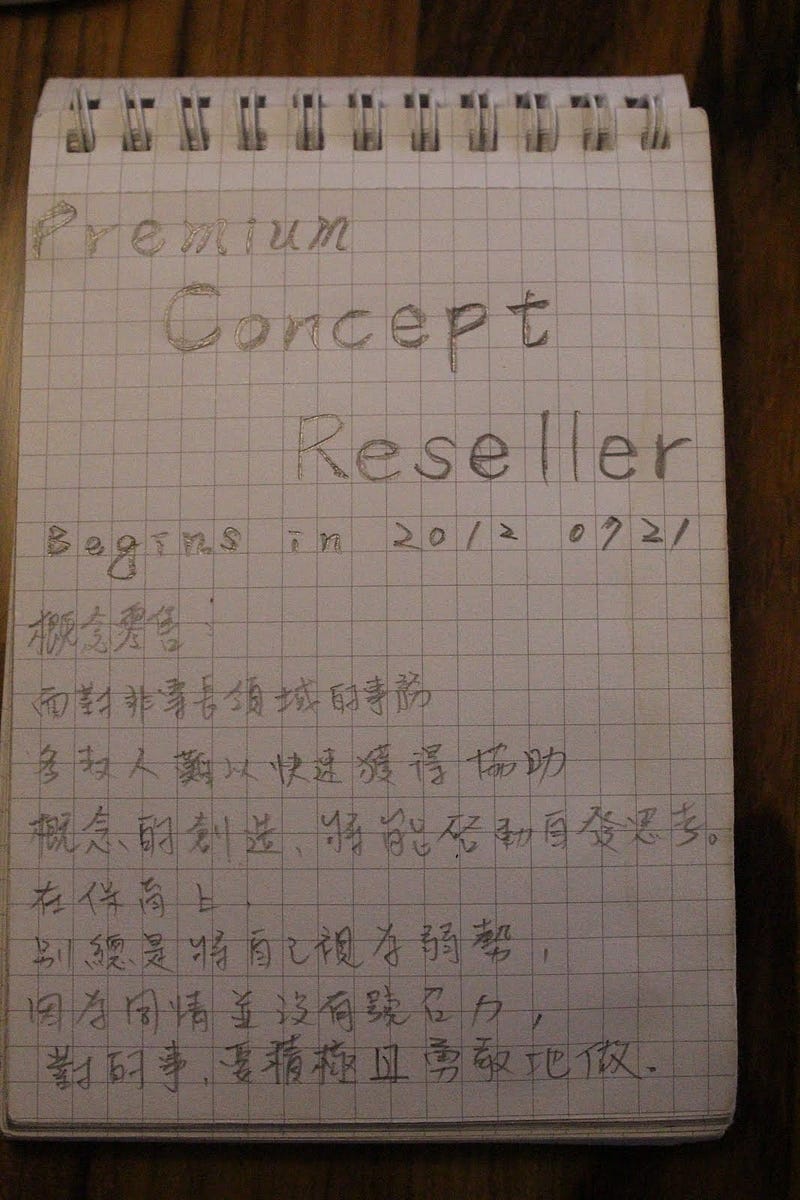 Premium
Concept
Reseller
Begins in 2012 0721
概念零售:
面對非專長領域的事務
多數人難以快速獲得協助
概念的創造、將能啓動自發思考。
在保育上,
別總是將自己視為弱勢,
因為同情並沒有號召力,
對的事,要積極且勇敢地做.